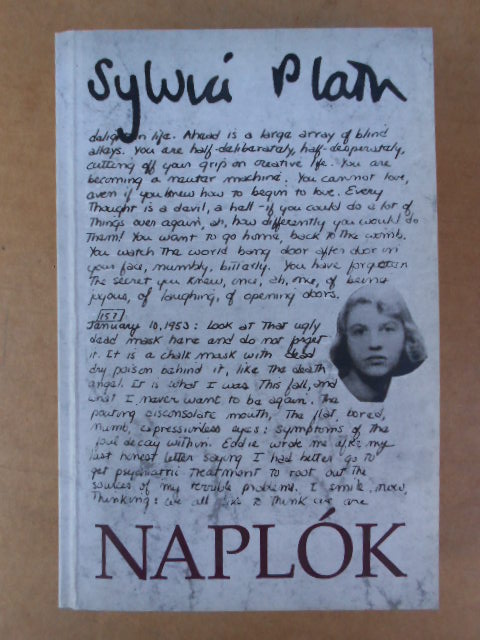 Sylvia Plath
daylight in life. Ahead is a large array of blind
alleys. You are half-deliberately, half-desperately,
cutting off your grip on creative life. You are
becoming a neuter machine. You cannot love,
even if you knew how to begin to love. Every
Thought is a devil, a hell - if you could do a lot of
things over again, ah, how differently you would do
Them! You want to go home, back to the womb.
You watch the world bang door after door in
your face, numbly, bitterly. You have forgotten
the secret you knew, once, ah, once, of being
joyous, of laughing, of opening doors.
157
January 10, 1953: Look at That ugly
dead mask here and do not forget
it. It is a chalk mask with dead
dry poison behind it, like the death
angel. It is what I was This fall, and
what I never want to be again. The
pouting disconsolate mouth, The flat, bored,
numb, expressionless eyes: symptoms of the
foul decay within. Eddie wrote me after my
last honest letter saying I had better go to
get psychiatric treatment to root out the
sources of my terrible problems. I smile, now,
Thinking: we all like to think we are
NAPLÓK